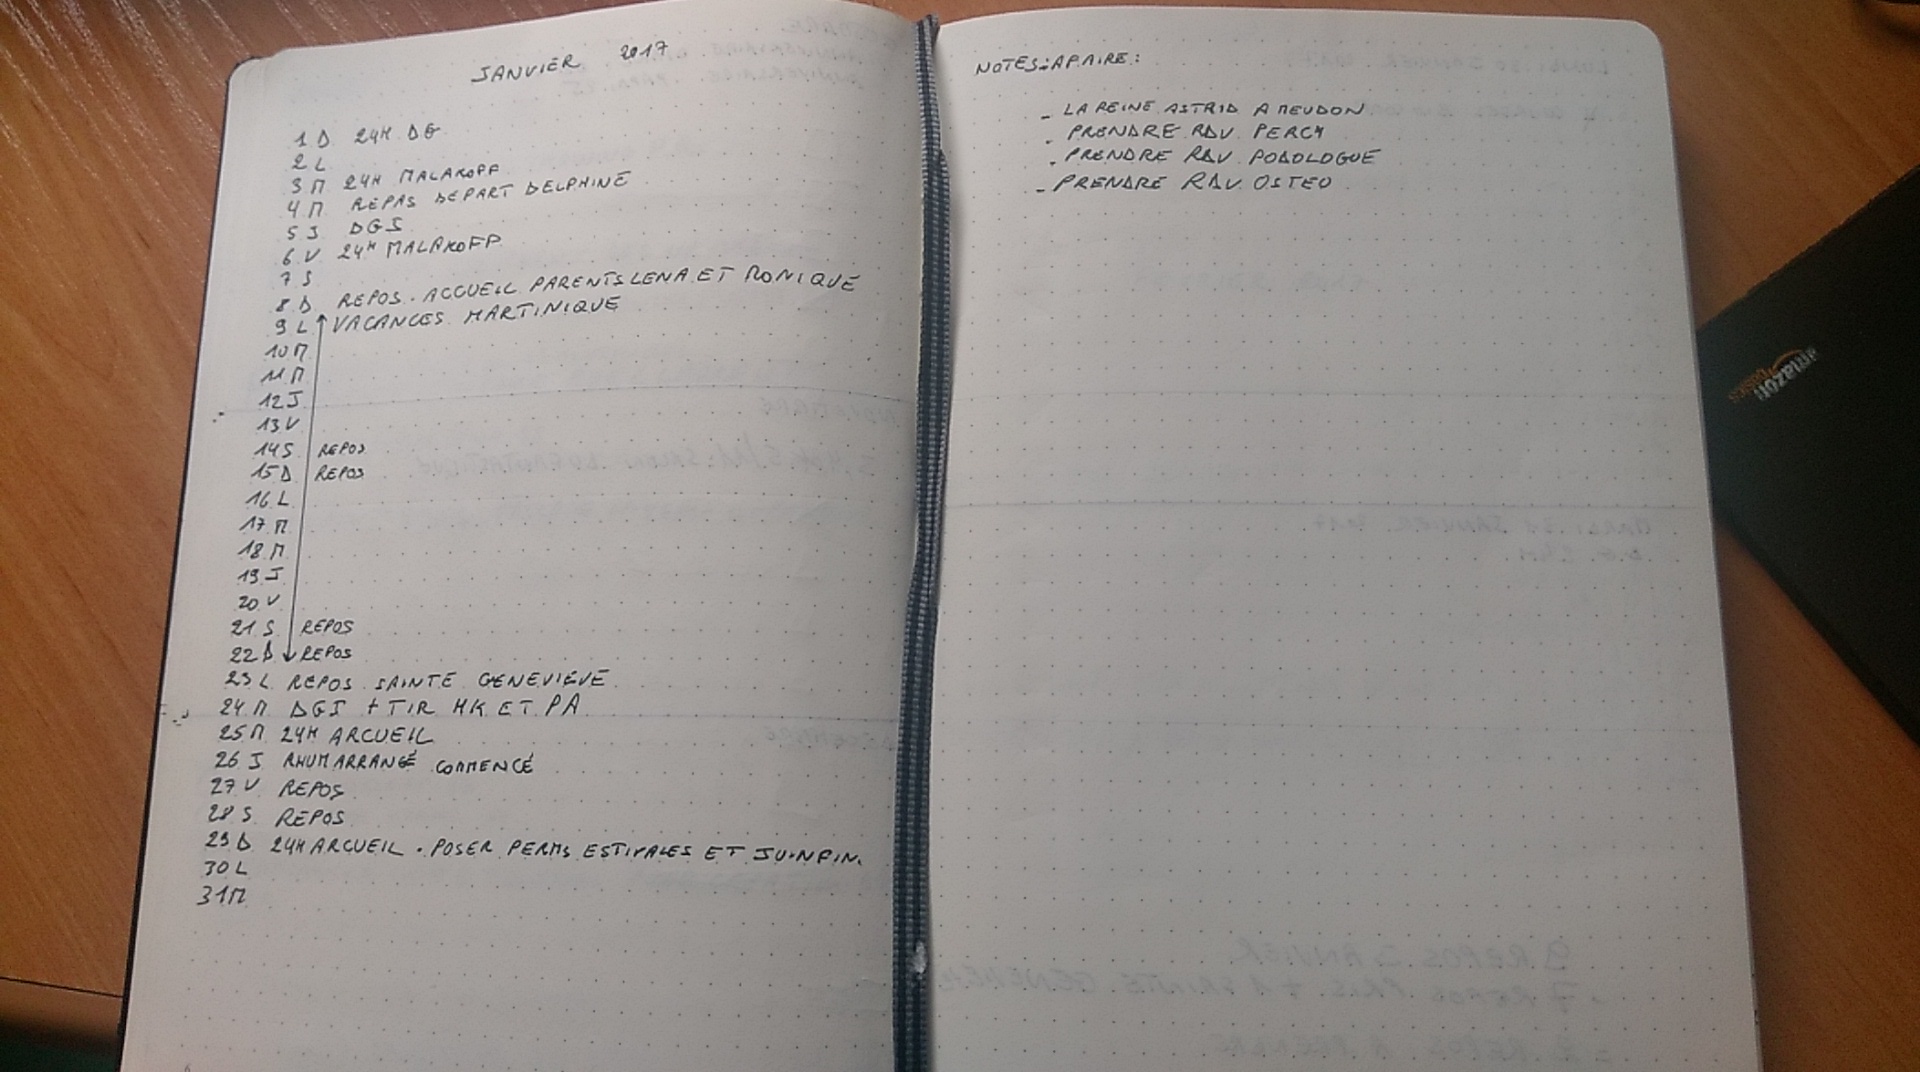 JANVIER 2017
1 D 24H DG
2 L
3 M 24H MALAKOFF
4 M REPAS DEPART DELPHINE
5 J DGI
6 V 24H MALAKOFF
7 S
8 D REPOS. ACCUEIL PARENTS LENA ET MONIQUE
9 L VACANCES MARTINIQUE
10 M
11 M
12 J
13 V
14 S REPOS
15 D REPOS
16 L
17 M
18 M
19 J
20 V
21 S REPOS
22 D REPOS
23 L REPOS SAINTE GENEVIEVE
24 M DGI + TIR HK ET PA
25 M 24H ARCUEIL
26 J RHUM ARRANGÉ COMMENCÉ
27 V REPOS
28 S REPOS
29 D 24H ARCUEIL . POSER PERMS ESTIVALES ET JUIN FIN.
30 L
31 M
NOTES: A FAIRE:
- LA REINE ASTRID A MEUDON
- PRENDRE RDV PERCY
- PRENDRE RDV PODOLOGUE
- PRENDRE RDV OSTEO
amazon
basics